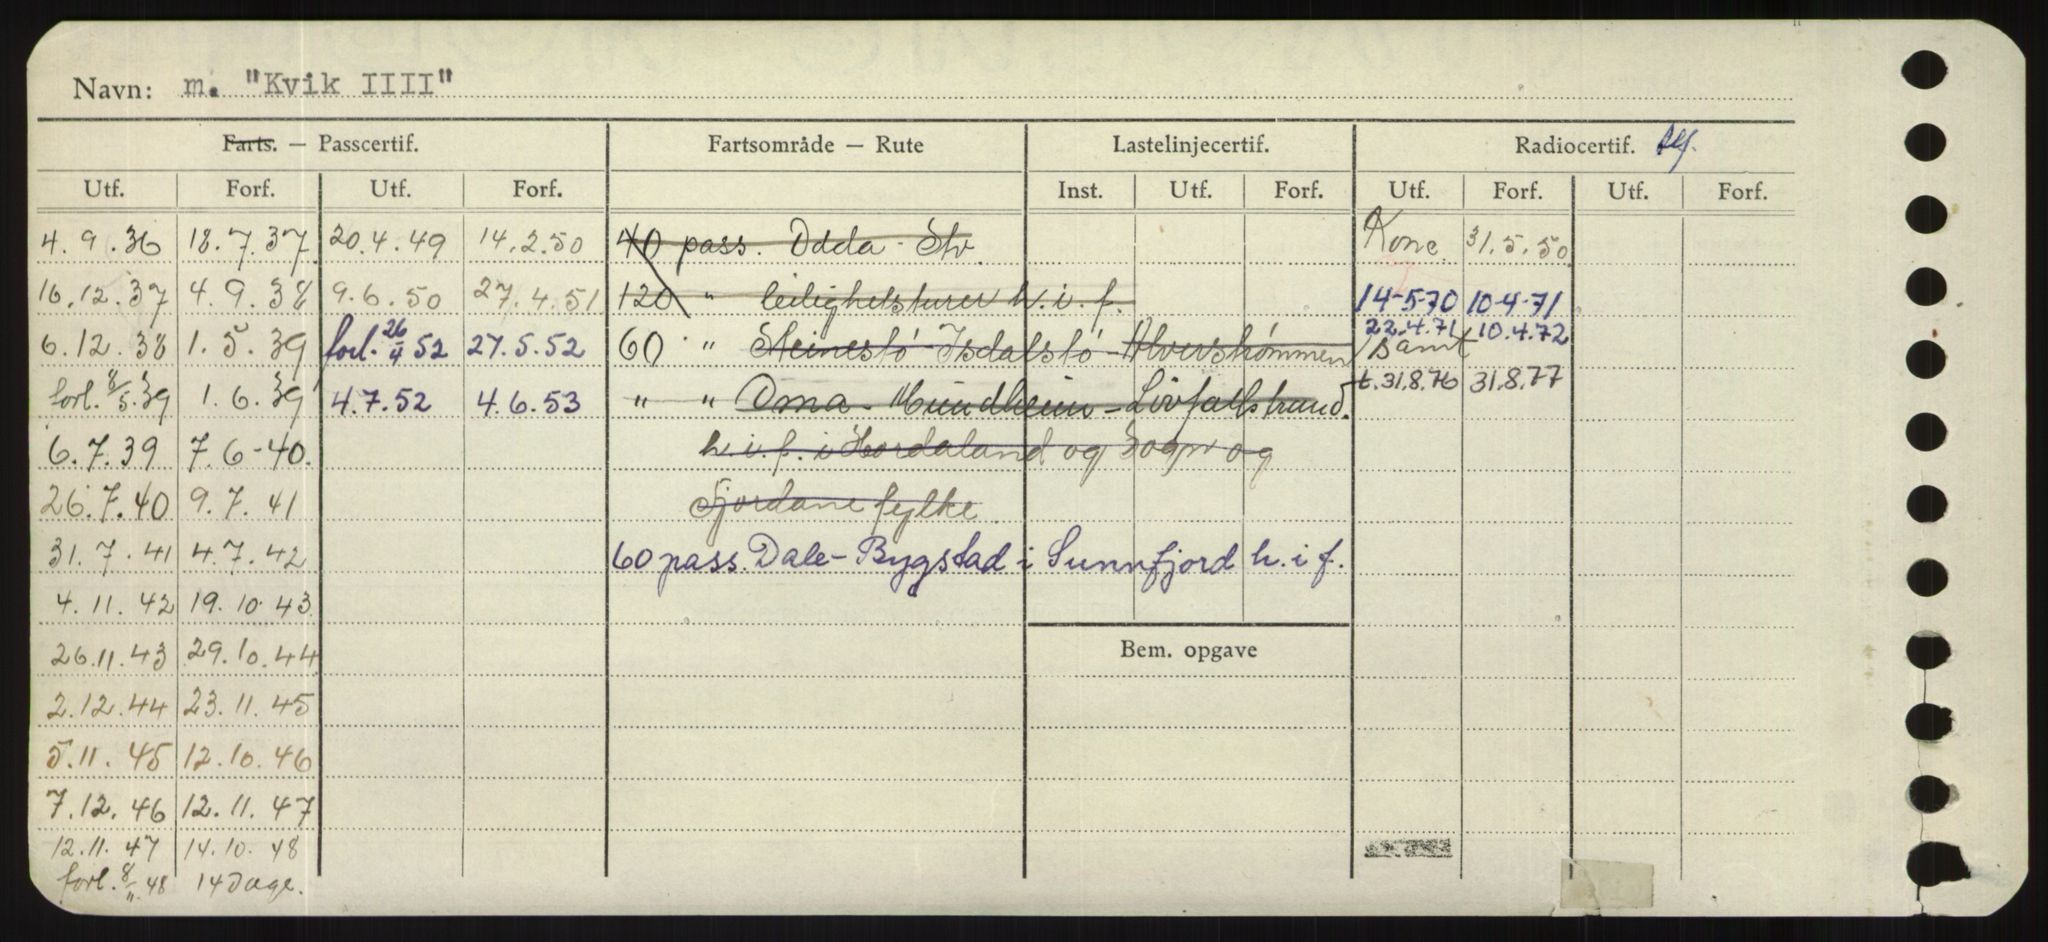 Navn: m. "Kvik IIII"
Farts. — Passcertif. Fartsområde — Rute Lastelinjecertif. Radiocertif.
Utf. Forf. Utf. Forf. Inst. Utf. Forf. Utf. Forf. Utf. Forf.
4.9.36 18.7.37 20.4.49 14.2.50 40 pass. Odda - Stv. Konc. 31.5.50
16.12.37 4.9.38 9.6.50 27.4.51 120 " leilighetsturer h.i.f. 14-5-70 10-4-71
22.4.71 10.4.72
6.12.38 1.5.39 forl. 26/4 52 27.5.52 60 " Steinestö - Isdalstö - Alverströmmen /samt
t.31.8.76 31.8.77
forl. 8/5.39 1.6.39 4.7.52 4.6.53 " " Oma - Mundheim - Lövfallstrand.
6.7.39 7.6-40. h.i.f. i Hordaland og Sogn og
26.7.40 9.7.41 Fjordane fylke.
31.7.41 4.7.42 60 pass. Dale - Bygstad i Sunnfjord h.i f.
4.11.42 19.10.43
26.11.43 29.10.44 Bem. opgave
2.12.44 23.11.45
5.11.45 12.10.46
7.12.46 12.11.47
12.11.47 14.10.48
forl. 8/11.48 14 Dage.